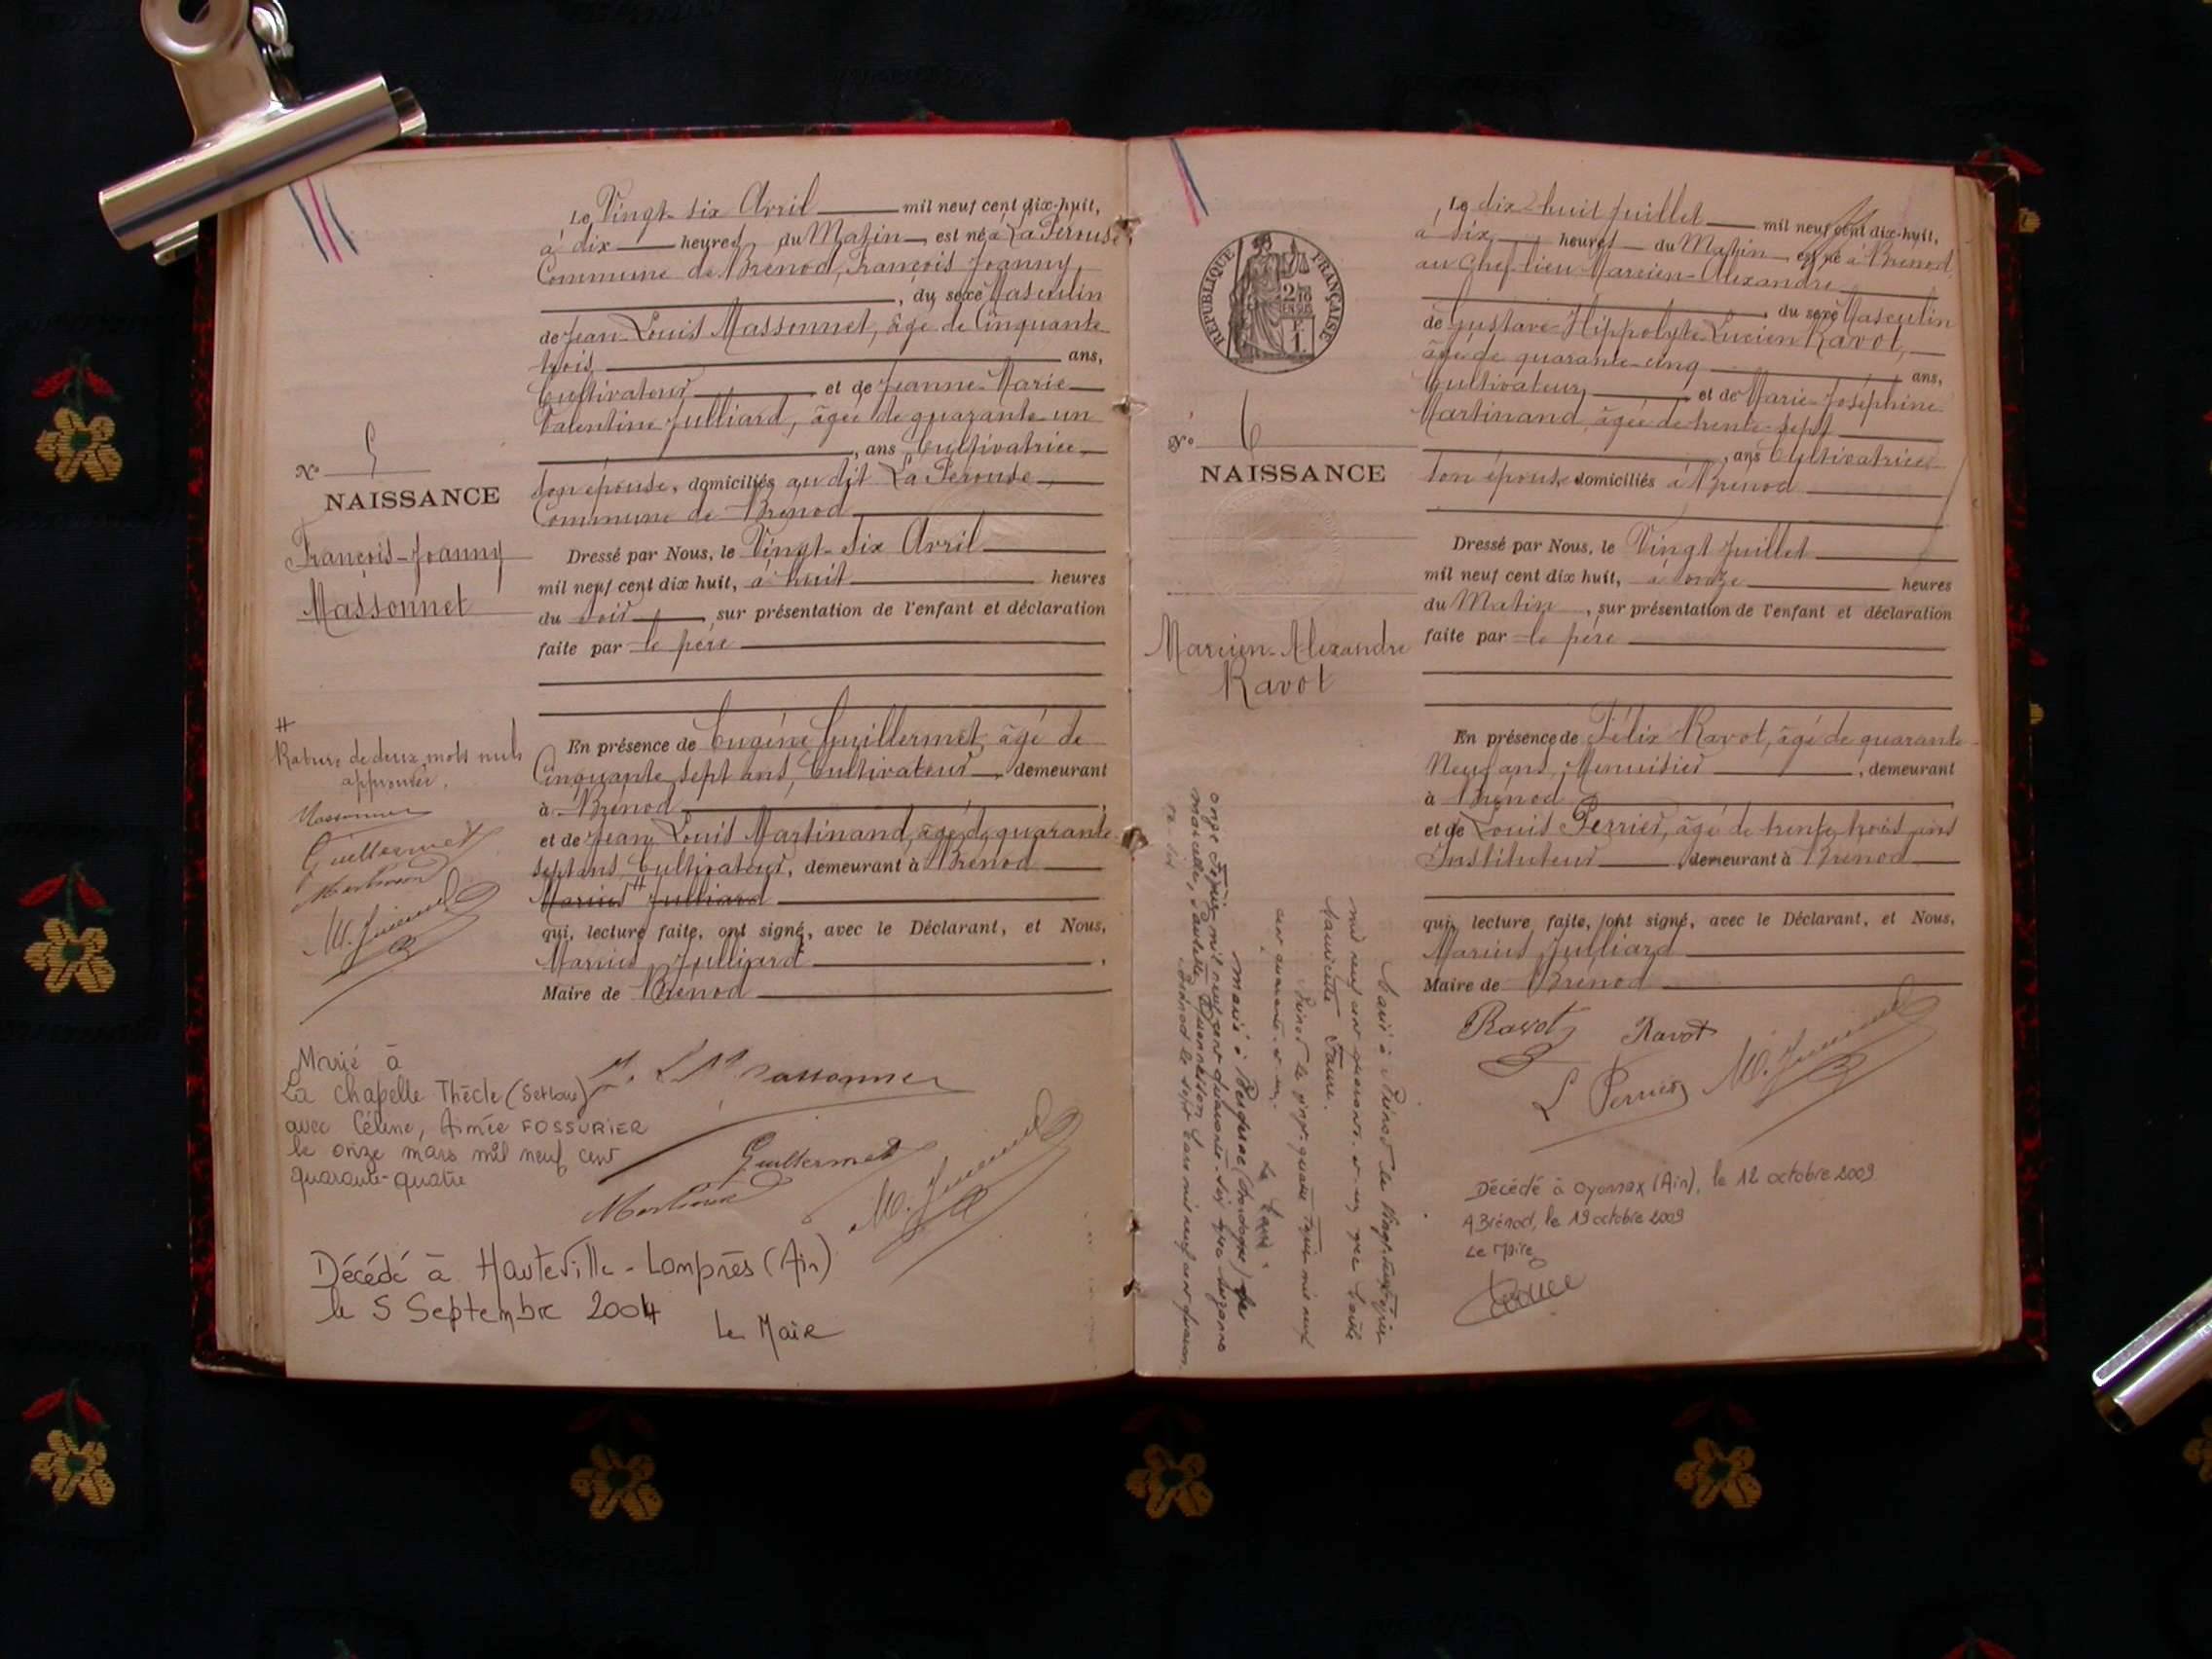 Le Vingt-six Avril mil neuf cent dix-huit,
à dix heures du Matin est né à La Pérouse
Commune de Brénod, François Joanny
, du sexe Masculin
de Jean-Louis Massonnet, âgé de Cinquante
trois ans,
Cultivateur et de Jeanne-Marie
Valentine Julliard, âgée de quarante-un
, ans Cultivatrice
son épouse, domiciliés au dit La Pérouse
Commune de Brénod
N° 5
NAISSANCE
François-Joanny
Massonnet
Dressé par Nous, le Vingt-six Avril
mil neuf cent dix huit, à huit heures
du soir, sur présentation de l'enfant et déclaration
faite par le père
En présence de Eugène Guillermet, âgé de
Cinquante sept ans, Cultivateur demeurant
à Brénod,
et de Jean Louis Martinand, âgé de quarante
sept ans Cultivateur, demeurant à Brénod
Marius # Julliard
qui, lecture faite, ont signé, avec le Déclarant, et Nous,
Marius Julliard,
Maire de Brénod
#
Rature de deux mots nuls
approuvée.
Massonnet
Guillermet
Martinand
M. Julliard
J. L. Massonnet
Guillermet
Martinand
M. Julliard
Marié à
La Chapelle Thècle
avec Céline, Aimée FOSSURIER
le onze mars mil neuf cent
quarante-quatre
Décédé à Hauteville-Lompnès (Ain)
le 5 Septembre 2004
Le Maire
Le dix-huit Juillet mil neuf cent dix-huit,
à six heures du Matin est né à Brénod,
au Chef-lieu Marcien-Alexandre
, du sexe Masculin
de Gustave-Hippolyte-Lucien Ravot,
âgé de quarante-cinq ans,
Cultivateur et de Marie-Joséphine
Martinand âgée de trente-sept
, ans Cultivatrice
son épouse domiciliés à Brénod
RÉPUBLIQUE FRANÇAISE
N° 6
NAISSANCE
Marcien-Alexandre
Ravot
Dressé par Nous, le Vingt Juillet
mil neuf cent dix huit, à onze heures
du Matin, sur présentation de l'enfant et déclaration
faite par le père
En présence de Félix Ravot, âgé de quarante
Neuf ans, Menuisier, demeurant
à Brénod
et de Louis Perrier, âgé de trente trois ans
Instituteur, demeurant à Brénod
qui, lecture faite, ont signé, avec le Déclarant, et Nous,
Marius Julliard
Maire de Brénod
Ravot Ravot
L Perrier M. Julliard
Marié à Brénod le
mil neuf cent quarante et un avec
Mauricette Faure.
Brénod le vingt-quatre mil neuf
cent quarante et un.
Le Maire
Marié à Bergerac (Dordogne) le
onze mil neuf cent quarante-six avec Suzanne
Marcelle, Paulette
Brénod le sept mars mil neuf cent quaran
te-six
Décédé à Oyonnax (Ain), le 12 octobre 2009
A Brénod, le 19 octobre 2009
Le Maire